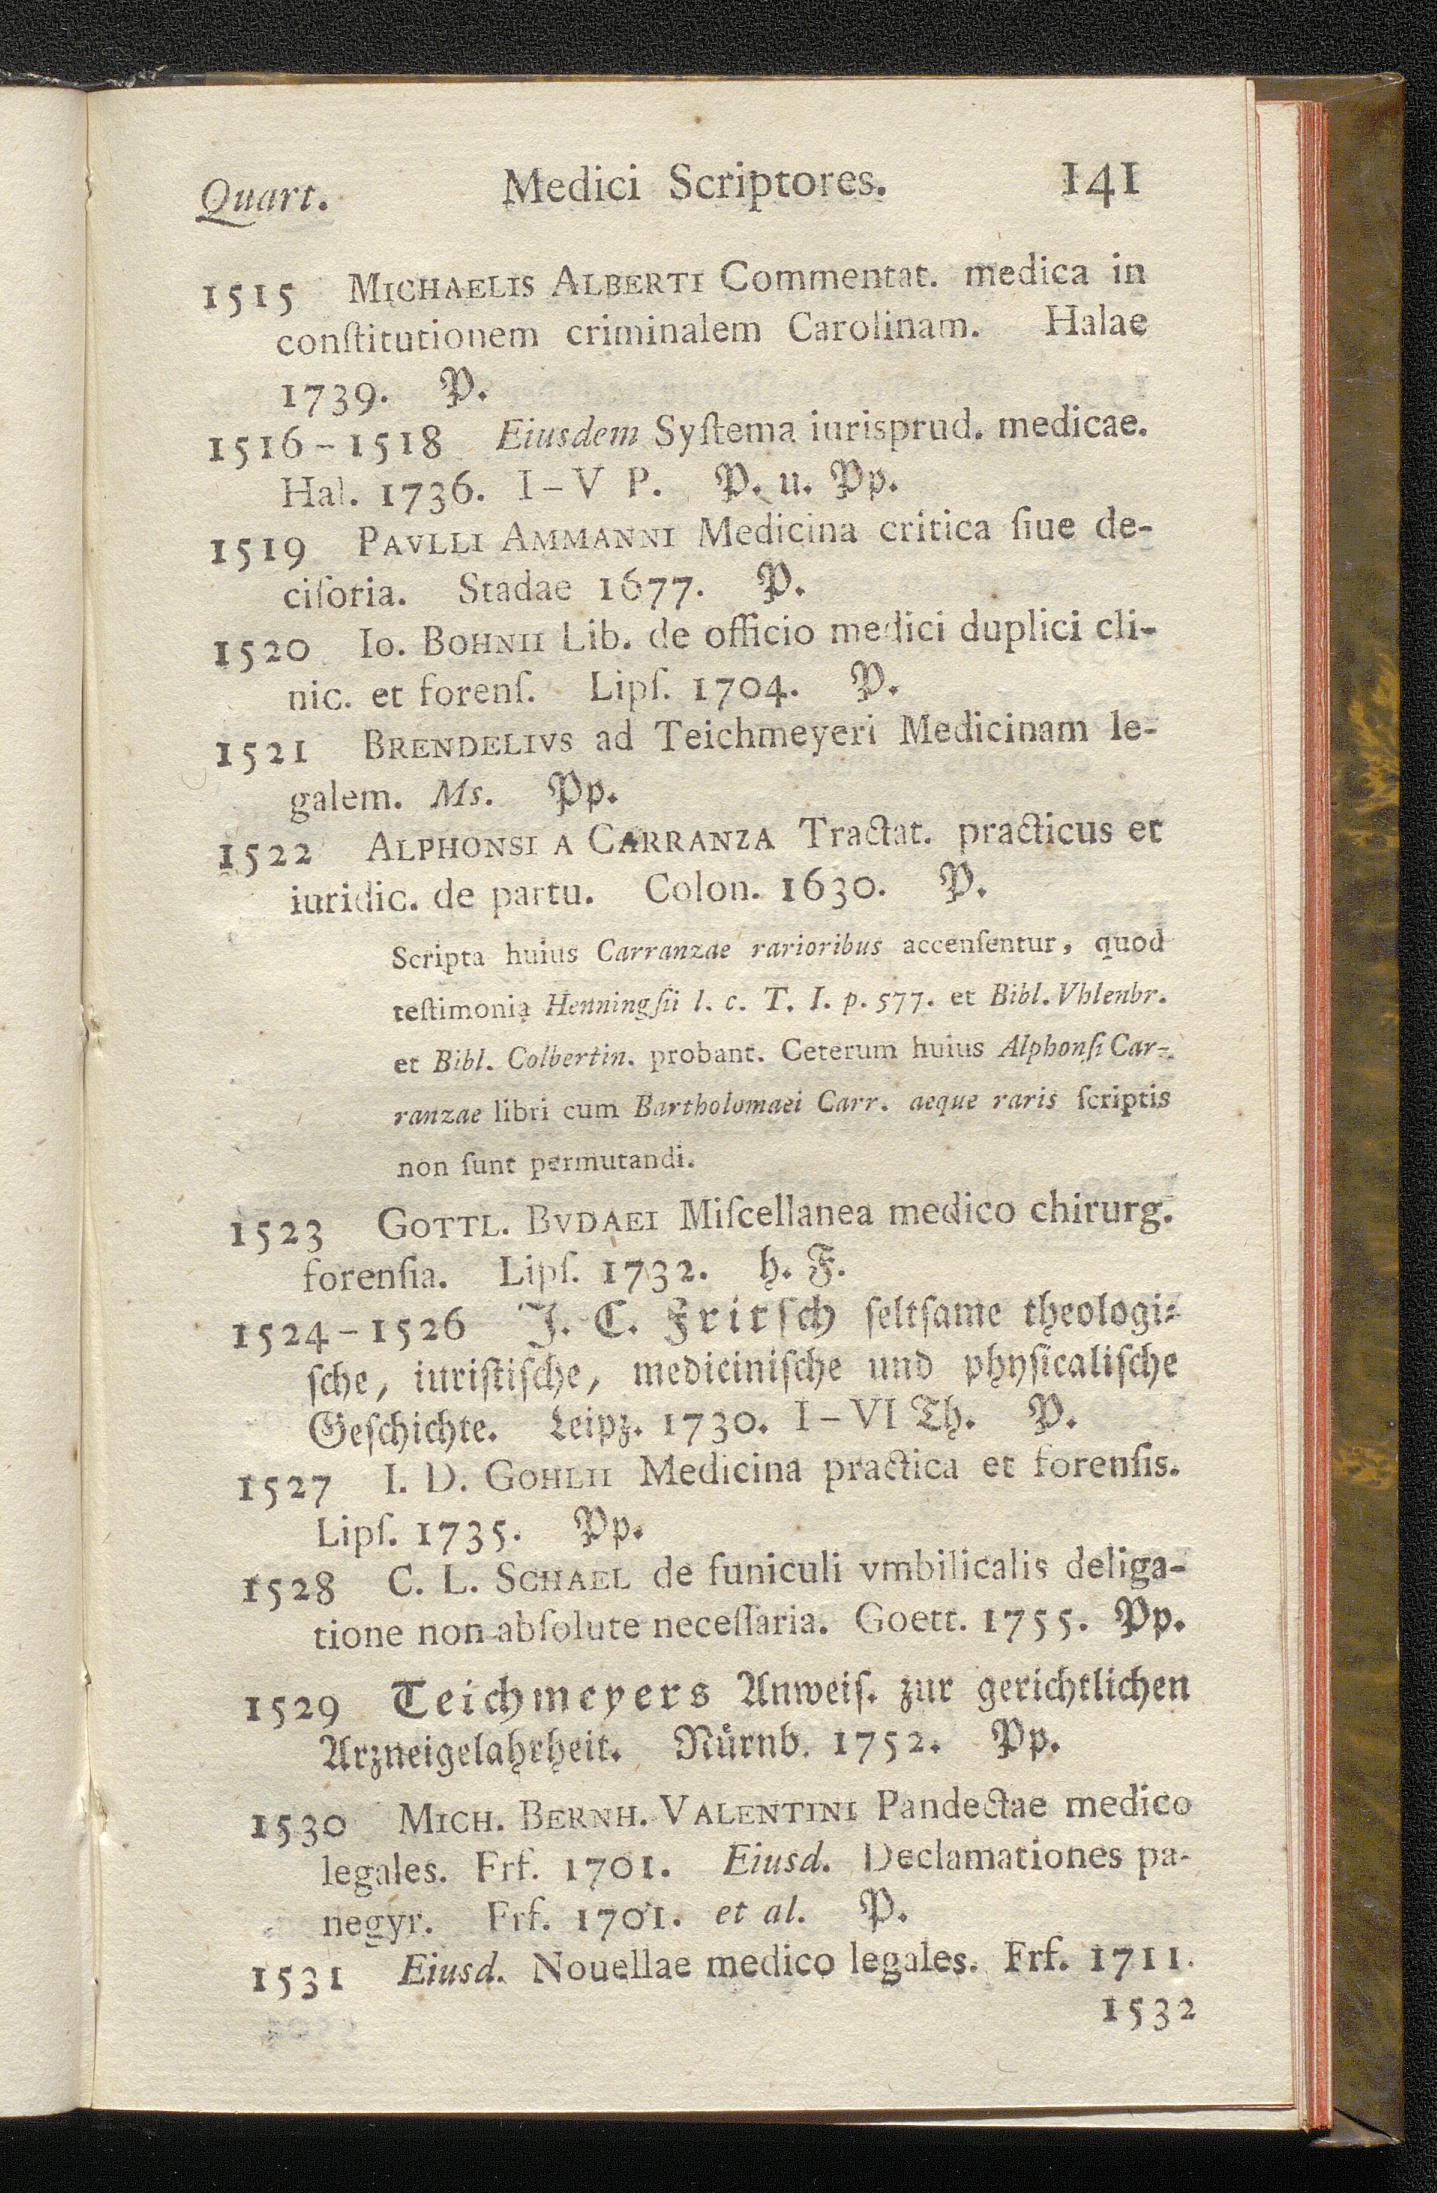 Quart. Medici Scriptores. 141
1515 MICHAELIS ALBERTI Commentat. medica in
conſtitutionem criminalem Carolinam. Halae
1739. P.
1516-1518 Eiusdem Syſtema iurisprud. medicae.
Hal. 1736. I-V P. P. u. Pp.
1519 PAVLLI AMMANNI Medicina critica ſiue de-
ciſoria. Stadae 1677. P.
1520 Io. BOHNII Lib. de officio medici duplici cli-
nic. et forenſ. Lipſ. 1704. P.
1521 BRENDELIVS ad Teichmeyeri Medicinam le-
galem. Ms. Pp.
1522 ALPHONSI A CARRANZA Tractat. practicus et
iuridic. de partu. Colon. 1630. P.
Scripta huius Carranzae rarioribus accenſentur, quod
teſtimonia Henningſii l. c. T. I. p. 577. et Bibl. Vhlenbr.
et Bibl. Colbertin. probant. Ceterum huius Alphonſi Car-
ranzae libri cum Bartholomaei Carr. aeque raris ſcriptis
non ſunt permutandi.
1523 GOTTL. BVDAEI Miſcellanea medico chirurg.
forenſia. Lipſ. 1732. h. F.
1524-1526 J. C. Fritſch ſeltſame theologi-
ſche, iuriſtiſche, mediciniſche und phyſicaliſche
Geſchichte. Leipz. 1730. I-VI Th. P.
1527 I. D. GOHLII Medicina practica et forenſis.
Lipſ. 1735. Pp.
1528 C. L. SCHAEL de funiculi vmbilicalis deliga-
tione non abſolute neceſſaria. Goett. 1755. Pp.
1529 Teichmeyers Anweiſ. zur gerichtlichen
Arzneigelahrheit. Nürnb. 1752. Pp.
1530 MICH. BERNH. VALENTINI Pandectae medico
legales. Frf. 1701. Eiusd. Declamationes pa-
negyr. Frf. 1701. et al. P.
1531 Eiusd. Nouellae medico legales. Frf. 1711.
1532